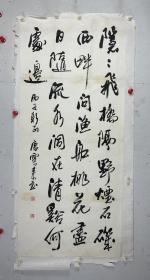 隱〻飛橋隔野煙石磯
西畔問漁船桃花盡
日隨流水洞在清谿何
處邊